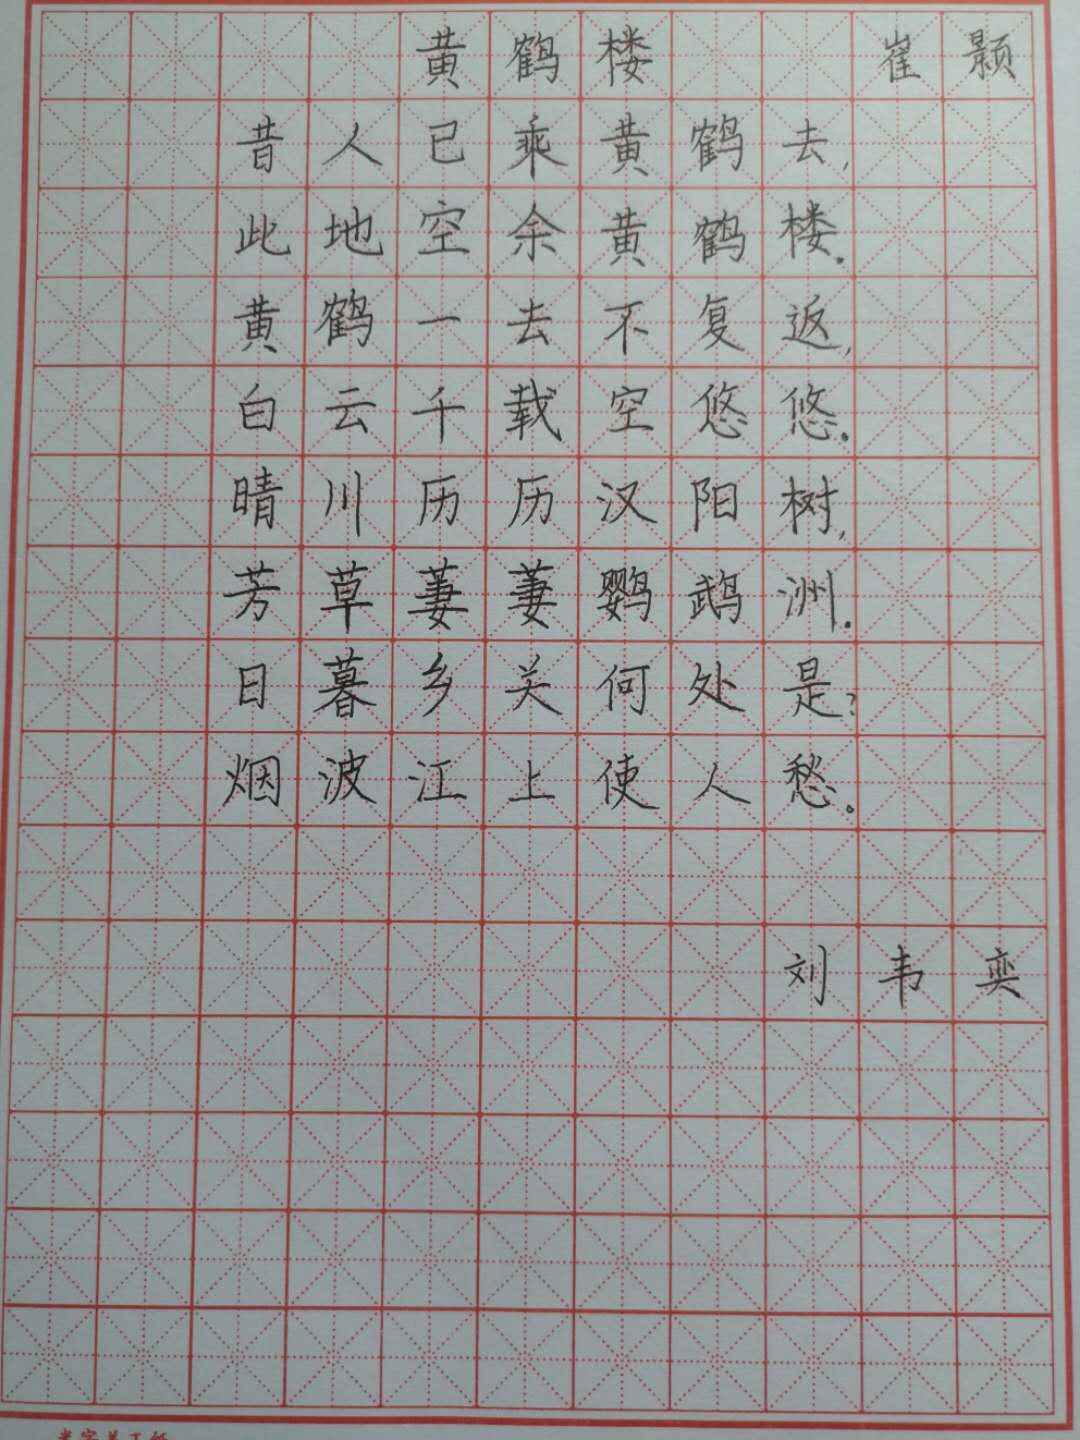 黄鹤楼 崔颢
昔人已乘黄鹤去,
此地空余黄鹤楼.
黄鹤一去不复返,
白云千载空悠悠.
晴川历历汉阳树,
芳草萋萋鹦鹉洲.
日暮乡关何处是?
烟波江上使人愁。
刘韦奕